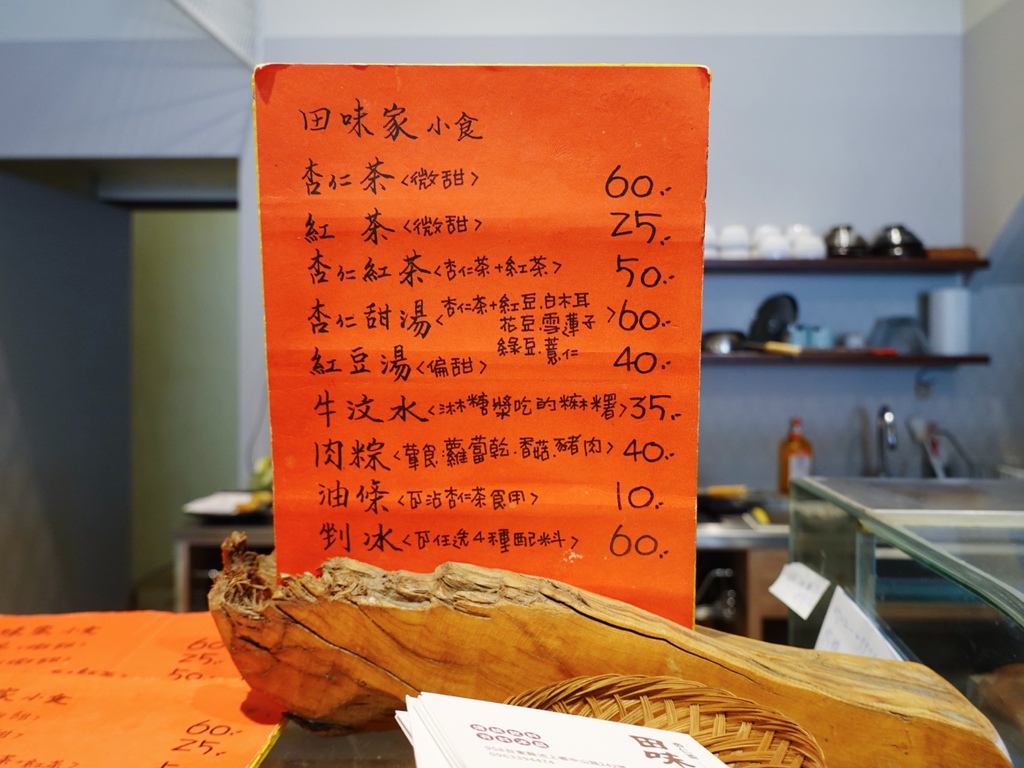 田味家 小食
杏仁茶<微甜> 60.-
紅 茶<微甜> 25.-
杏仁紅茶<杏仁茶+紅茶> 50.-
杏仁甜湯<杏仁茶+紅豆.白木耳
花豆.雪蓮子
綠豆.薏仁> 60.-
紅豆湯<偏甜> 40.-
牛汶水<淋糖漿吃的麻糬> 35.-
肉粽<葷食:蘿蔔乾.香菇.豬肉> 40.-
油條<可沾杏仁茶食用> 10.-
剉冰<可任選4種配料> 60.-
味家小食
60.-
25.-
50.-
家小食
60.-
25.-
田味